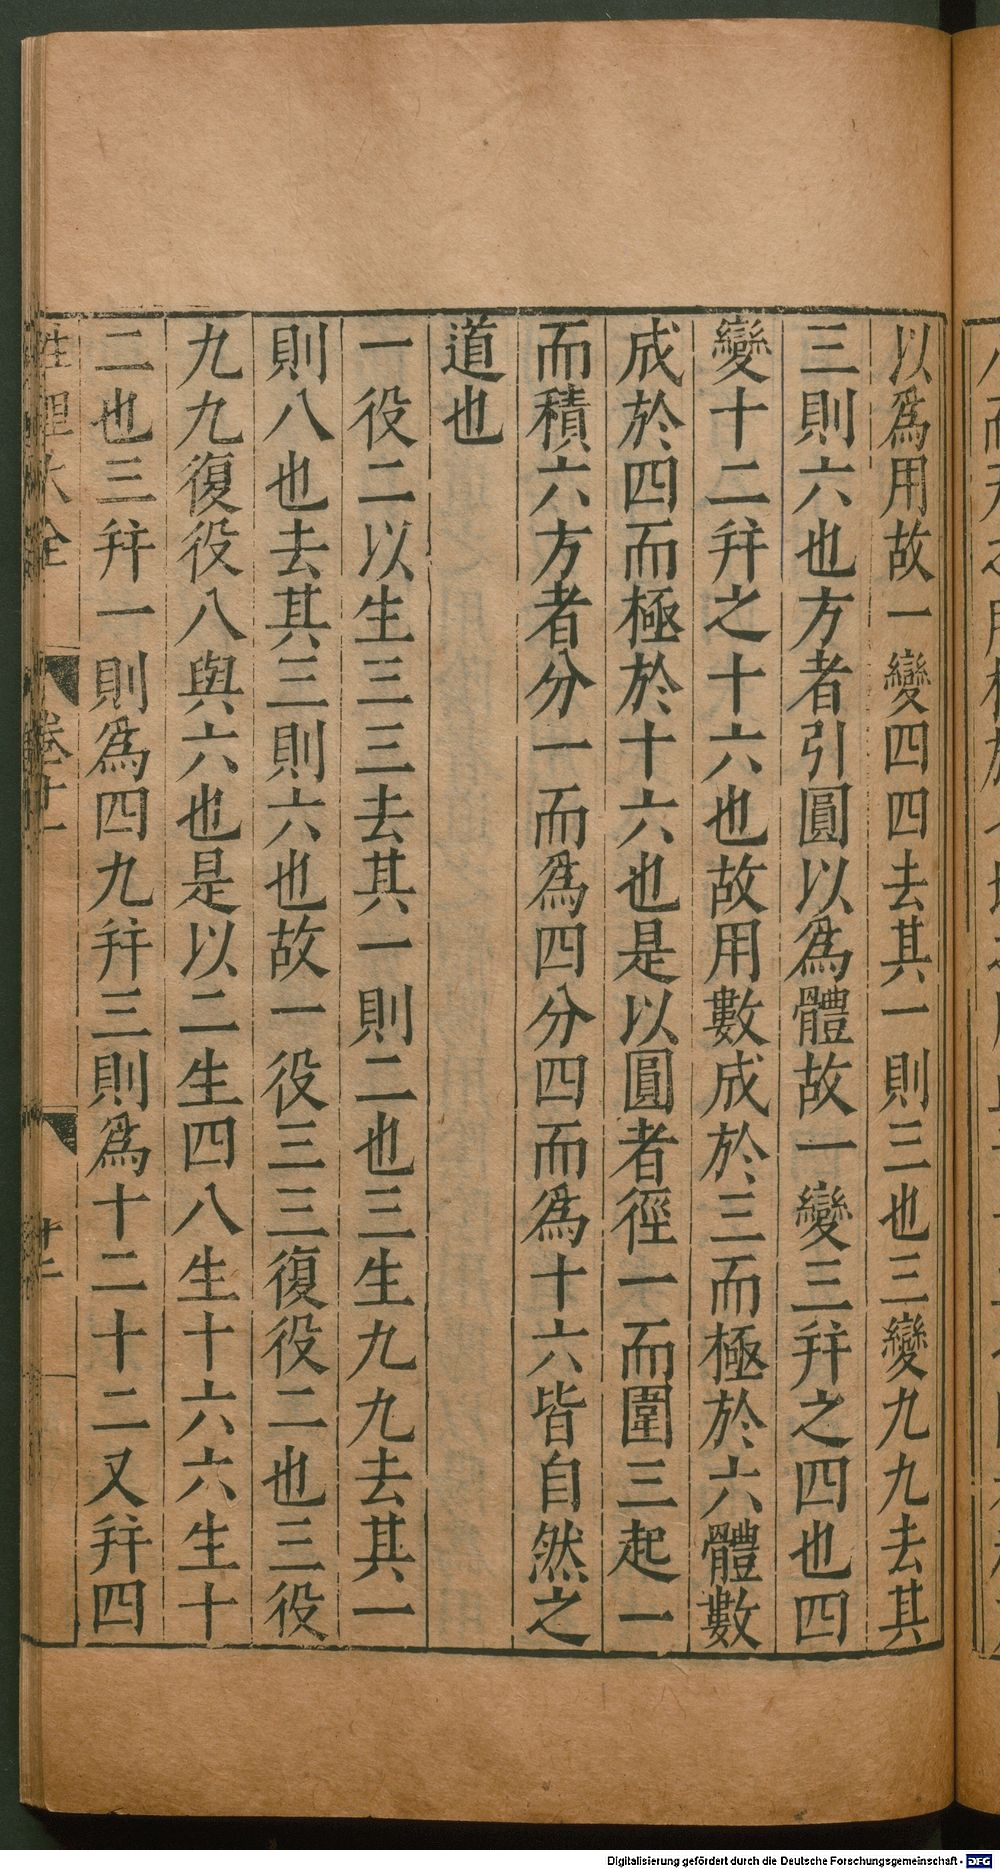 以爲用故一變四四去其一則三也三變九九去其
三則六也方者引圓以爲體故一變三幷之四也四
變十二幷之十六也故用數成於三而極於六體數
成於四而極於十六也是以圓者徑一而圍三起一
而積六方者分一而爲四分四而爲十六皆自然之
道也
一役二以生三三去其一則二也三生九九去其一
則八也去其三則六也故一役三三復役二也三役
九九復役八與六也是以二生四八生十六六生十
二也三幷一則爲四九幷三則爲十二十二又幷四
性理大全 卷十一 廿二
Digitalisierung gefördert durch die Deutsche Forschungsgemeinschaft - DFG